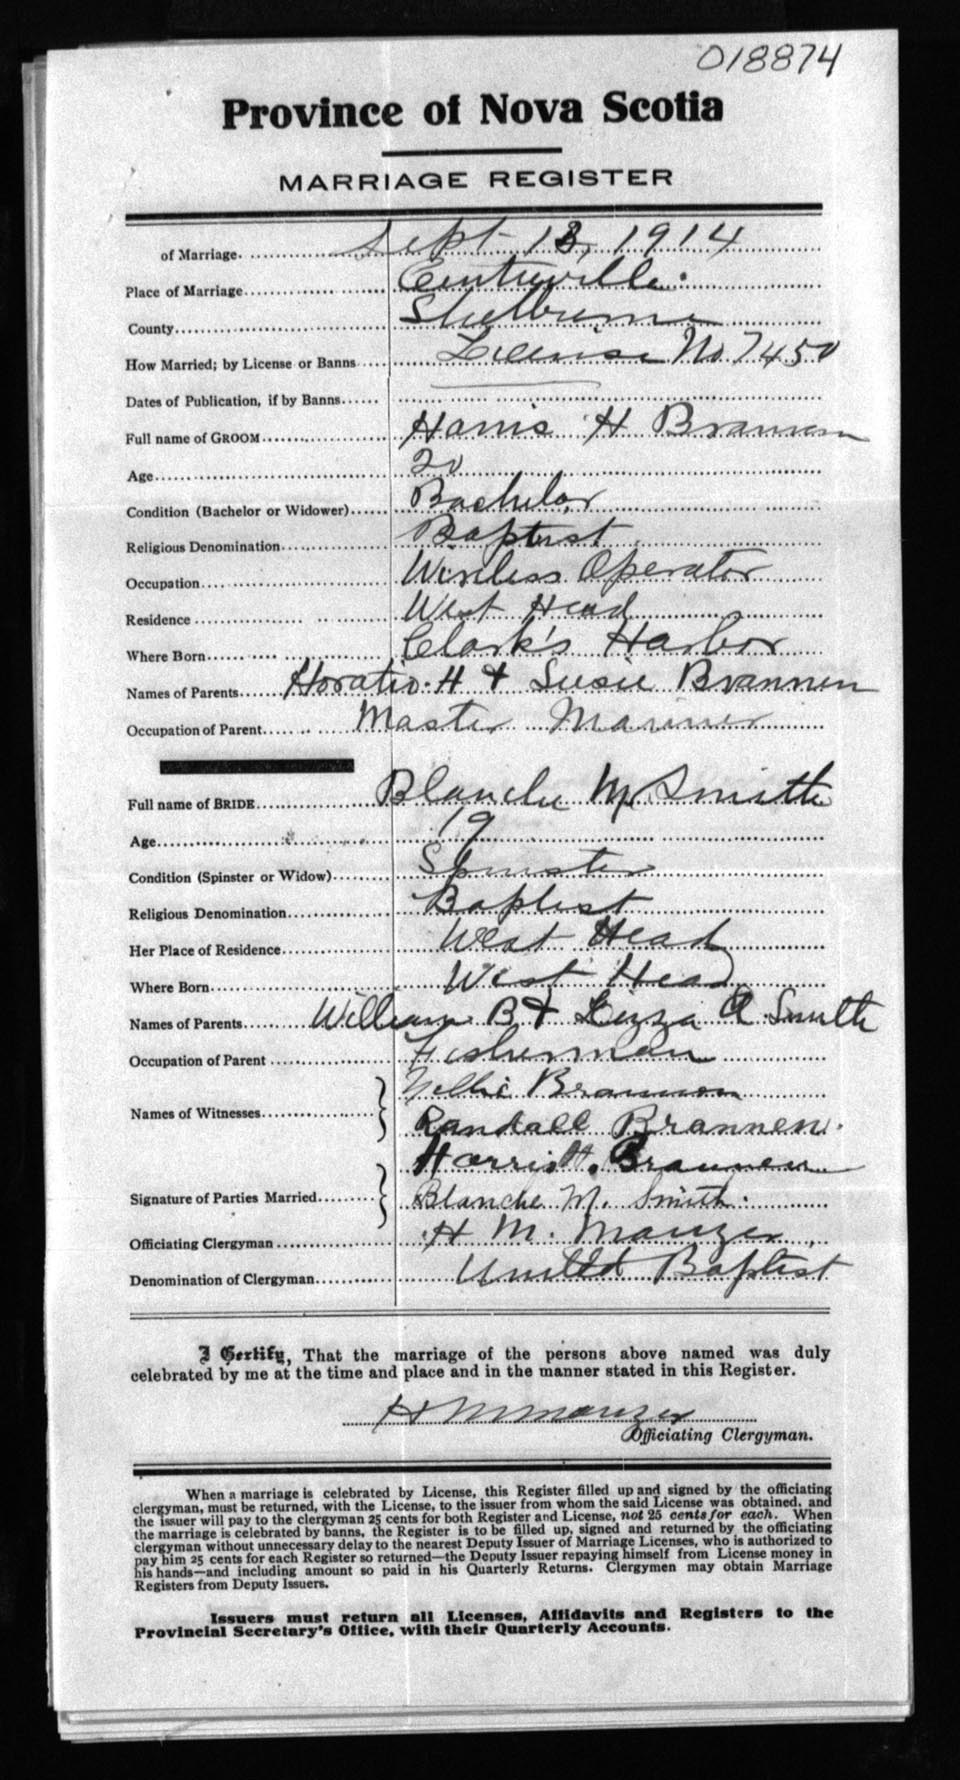 018874
Province of Nova Scotia
MARRIAGE REGISTER
of Marriage Sept 13, 1914
Place of Marriage Centreville
County Shelburne
How Married; by License or Banns License No 7450
Dates of Publication, if by Banns
Full name of GROOM Harris H Brannen
Age 20
Condition (Bachelor or Widower) Bachelor
Religious Denomination Baptist
Occupation Wireless Operator
Residence West Head
Where Born Clark's Harbor
Names of Parents Horatio H & Susie Brannen
Occupation of Parent Master Mariner
Full name of BRIDE Blanche M Smith
Age 19
Condition (Spinster or Widow) Spinster
Religious Denomination Baptist
Her Place of Residence West Head
Where Born West Head
Names of Parents William B & Lizza A Smith
Occupation of Parent Fisherman
Names of Witnesses Nellie Brannen
Randall Brannen.
Signature of Parties Married Harris H. Brannen
Blanche M. Smith.
Officiating Clergyman H M. Manzer
Denomination of Clergyman United Baptist
I Certify, That the marriage of the persons above named was duly
celebrated by me at the time and place and in the manner stated in this Register.
H M Manzer
Officiating Clergyman.
When a marriage is celebrated by License, this Register filled up and signed by the officiating
clergyman, must be returned, with the License, to the issuer from whom the said License was obtained, and
the issuer will pay to the clergyman 25 cents for both Register and License, not 25 cents for each. When
the marriage is celebrated by banns, the Register is to be filled up, signed and returned by the officiating
clergyman without unnecessary delay to the nearest Deputy Issuer of Marriage Licenses, who is authorized to
pay him 25 cents for each Register so returned—the Deputy Issuer repaying himself from License money in
his hands—and including amount so paid in his Quarterly Returns. Clergymen may obtain Marriage
Registers from Deputy Issuers.
Issuers must return all Licenses, Affidavits and Registers to the
Provincial Secretary's Office, with their Quarterly Accounts.